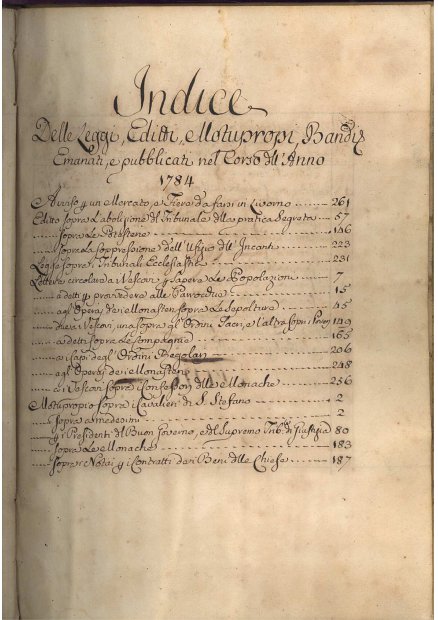 Indice
Delle Leggi, Editti, e Motupropi, Bandi
Emanati, e pubblicati nel Corso dell'Anno
1784
Avviso p un Mercato, e Fiera da farsi in Livorno 261
Editto sopra l'abolizione di Tribunale della pratica Segreta 57
sopra le Prestene 146
sopra la soppressione dell'Ufizio dell'Incanti 223
Legge sopra i Tribunali Ecclesiastici 231
Lettere circolari a i Vescovi p sapere le Popolazioni 7
a detti p provvedere alle Parrocchie 15
agli Operai de i Monasteri sopra le Sepolture 45
due a i Vescovi, una sopra gli Ordini Sacri, e l'altra sopra i 149
a detti sopra le Compagnie 165
a i Capi degli Ordini Regolari 206
agli Operai de i Monasteri 248
a i Vescovi sopra i Confessori delle Monache 256
Motuproprio sopra i Cavalieri di S. Stefano 2
sopra a medesimi 2
p i Presidenti del Buon Governo, e del Supremo Trib.le di Giustizia 80
sopra le Monache 183
sopra i Notai p i Contratti dei Beni delle Chiese 187